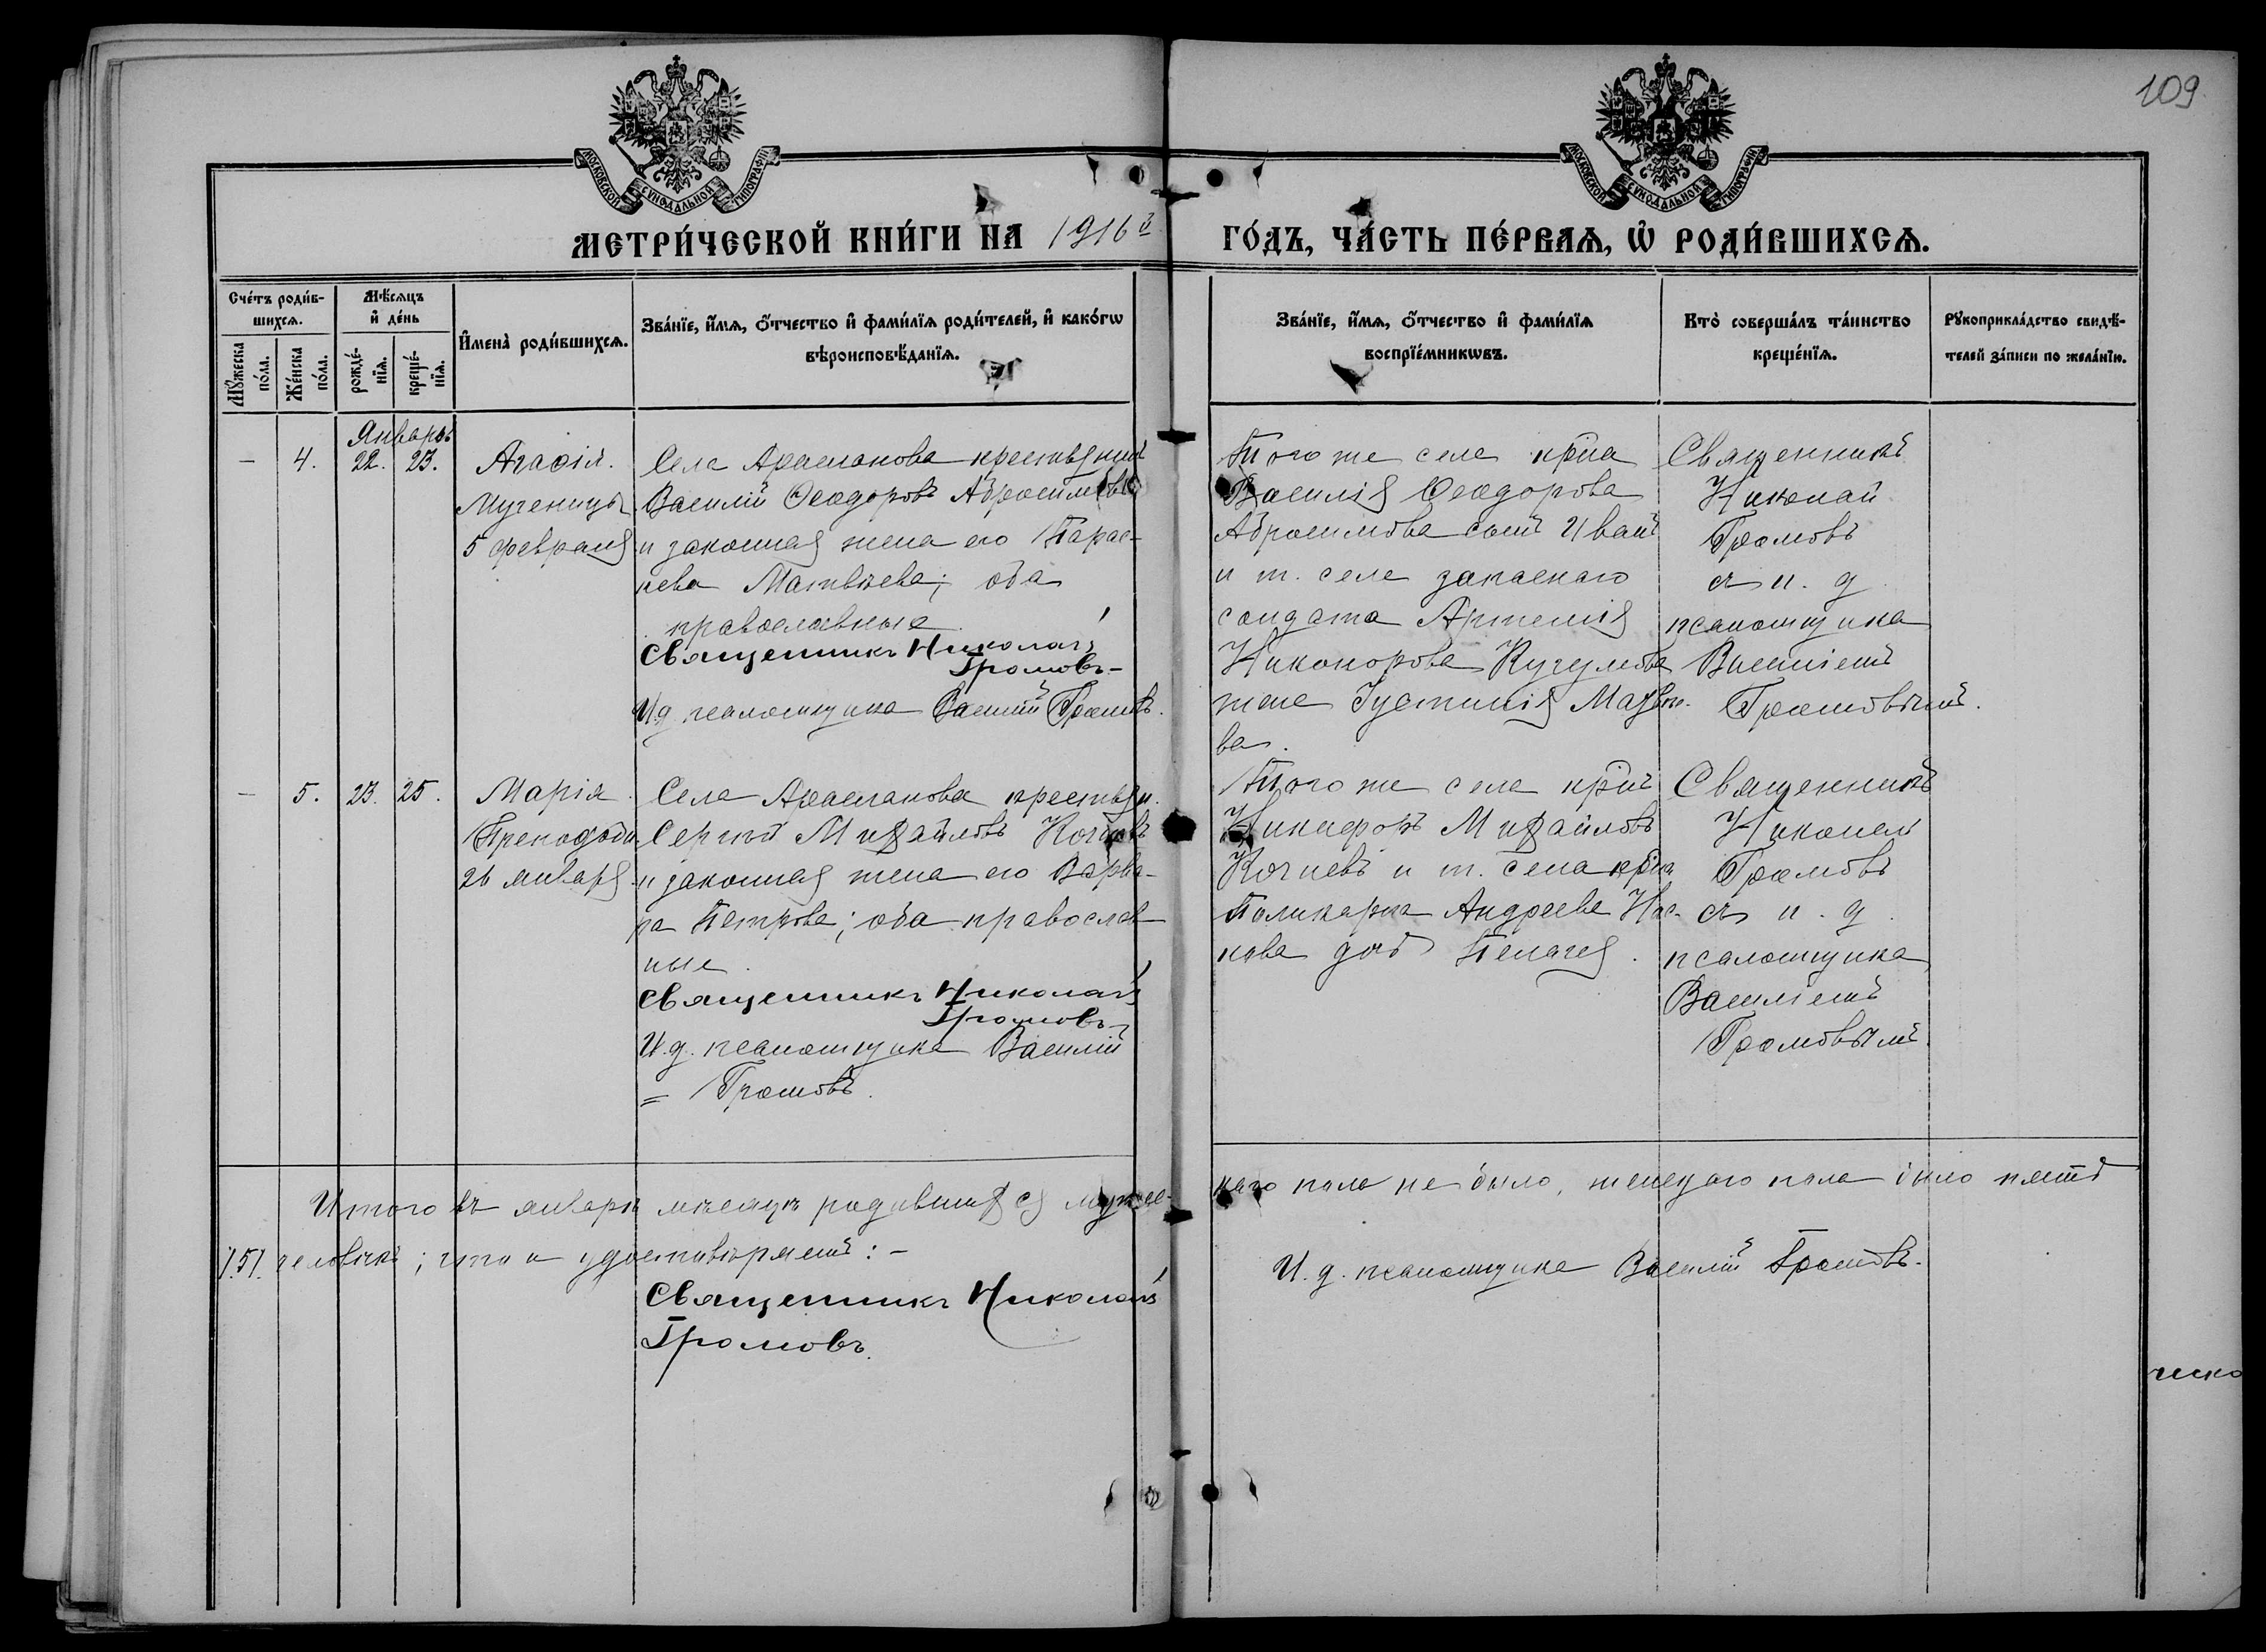 109
МОСКОВСКОЙ СѴНОДАЛЬНОЙ ТИПОГРАФІИ
МОСКОВСКОЙ СѴНОДАЛЬНОЙ ТИПОГРАФІИ
МЕТРИ́ЧЕСКОЙ КНИ́ГИ НА 1916й ГО́ДЪ, ЧА́СТЬ ПЕ́РВАЯ, Ѡ РОДИ́ВШИХСѦ.
Сче́тъ роди́в-
шихсѧ.
Мꙋ́жеска
по́ла.
Же́нска
по́ла.
Мѣ́сѧцъ
и҆ де́нь
рожде́-
нїѧ.
креще́-
нїѧ.
И҆мена̀ роди́вшихсѧ.
Зва́нїе, и҆́мѧ, ѻ҆́тчество и҆ фами́лїѧ роди́телей, и҆ како́гѡ
вѣроисповѣ́данїѧ.
Зва́нїе, и҆́мѧ, ѻ҆́тчество и҆ фами́лїѧ
воспрїе́мникѡвъ.
Кто̀ соверша́лъ та́инство
креще́нїѧ.
Рꙋкоприкла́дство свидѣ́-
телей за́писи по жела́нїю.
Январь
— 4. 22. 23.
Агаѳія.
Мученицы
5 февраля
Села Арасланова крестьянинъ
Василій Ѳеодоровъ Абросимовъ
и законная жена его Парас-
кева Матвѣева; оба
православные.
Священникъ Николай
Громовъ
И.д. псаломщика Василій Громовъ.
Того же села кр-на
Василія Ѳеодорова
Абросимова сынъ Иванъ
и т. села запаснаго
солдата Артемія
Никонорова Кучумова
жена Іустинія
ва.
Священникъ
Николай
Громовъ
съ и. д.
псаломщика
Василіемъ
Громовымъ.
— 5. 23. 25.
Марія.
Преподобн.
26 января.
Села Арасланова крестьян.
Сергѣй Михайловъ
и законная жена его Варва-
ра Петрова; оба православ-
ные.
Священникъ Николай
Громовъ
И.д. псаломщика Василій
= Громовъ.
Того же села кр-нъ
Никифоръ Михайловъ
и т. села кр-на
Поликарпа Андреева
дочь Пелагея.
Священникъ
Николай
Громовъ
съ и. д.
псаломщика
Василіемъ
Громовымъ.
Итого въ январѣ мѣсяцѣ родившихся мужес-
каго пола не было, женскаго пола было пять
/5/. человѣкъ; что и удостовѣряемъ: –
Священникъ Николай
Громовъ.
И. д. псаломщика Василій Громовъ.